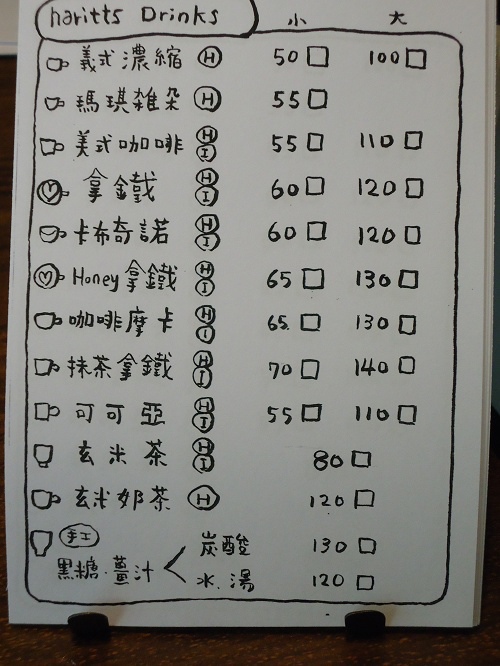 haritts Drinks 小 大
義式濃縮 H 50 100
瑪琪雑朵 H 55
美式咖啡 H I 55 110
拿鐵 H I 60 120
卡布奇諾 H I 60 120
Honey拿鐵 H I 65 130
咖啡摩卡 H I 65 130
抹茶拿鐵 H I 70 140
可可亞 H I 55 110
玄米茶 H I 80
玄米奶茶 H 120
手工 炭酸 130
黑糖·薑汁 水.湯 120